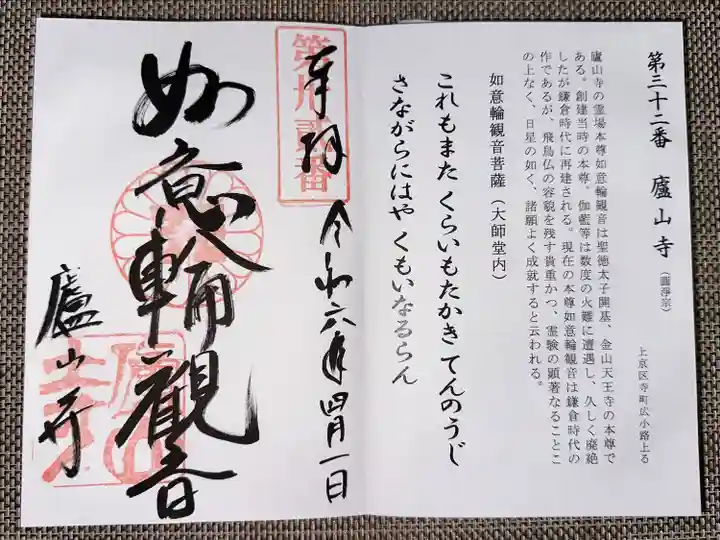 第三十二番 廬山寺(圓淨宗)
上京区寺町広小路上る
廬山寺の霊場本尊如意輪観音は聖徳太子開基、金山天王寺の本尊で
ある。創建当時の本尊。伽藍等は数度の火難に遭遇し、久しく廃絶
したが鎌倉時代に再建される。現在の本尊如意輪観音は鎌倉時代の
作であるが、飛鳥仏の容貌を残す貴重かつ、霊験の顕著なることこ
の上なく、日星の如く、諸願よく成就すると云われる。
如意輪観音菩薩(大師堂内)
これもまた くらいもたかき てんのうじ
さながらにはや くもいなるらん
奉拝 令和六年四月一日
第卅貳番
如意輪観音
廬山寺